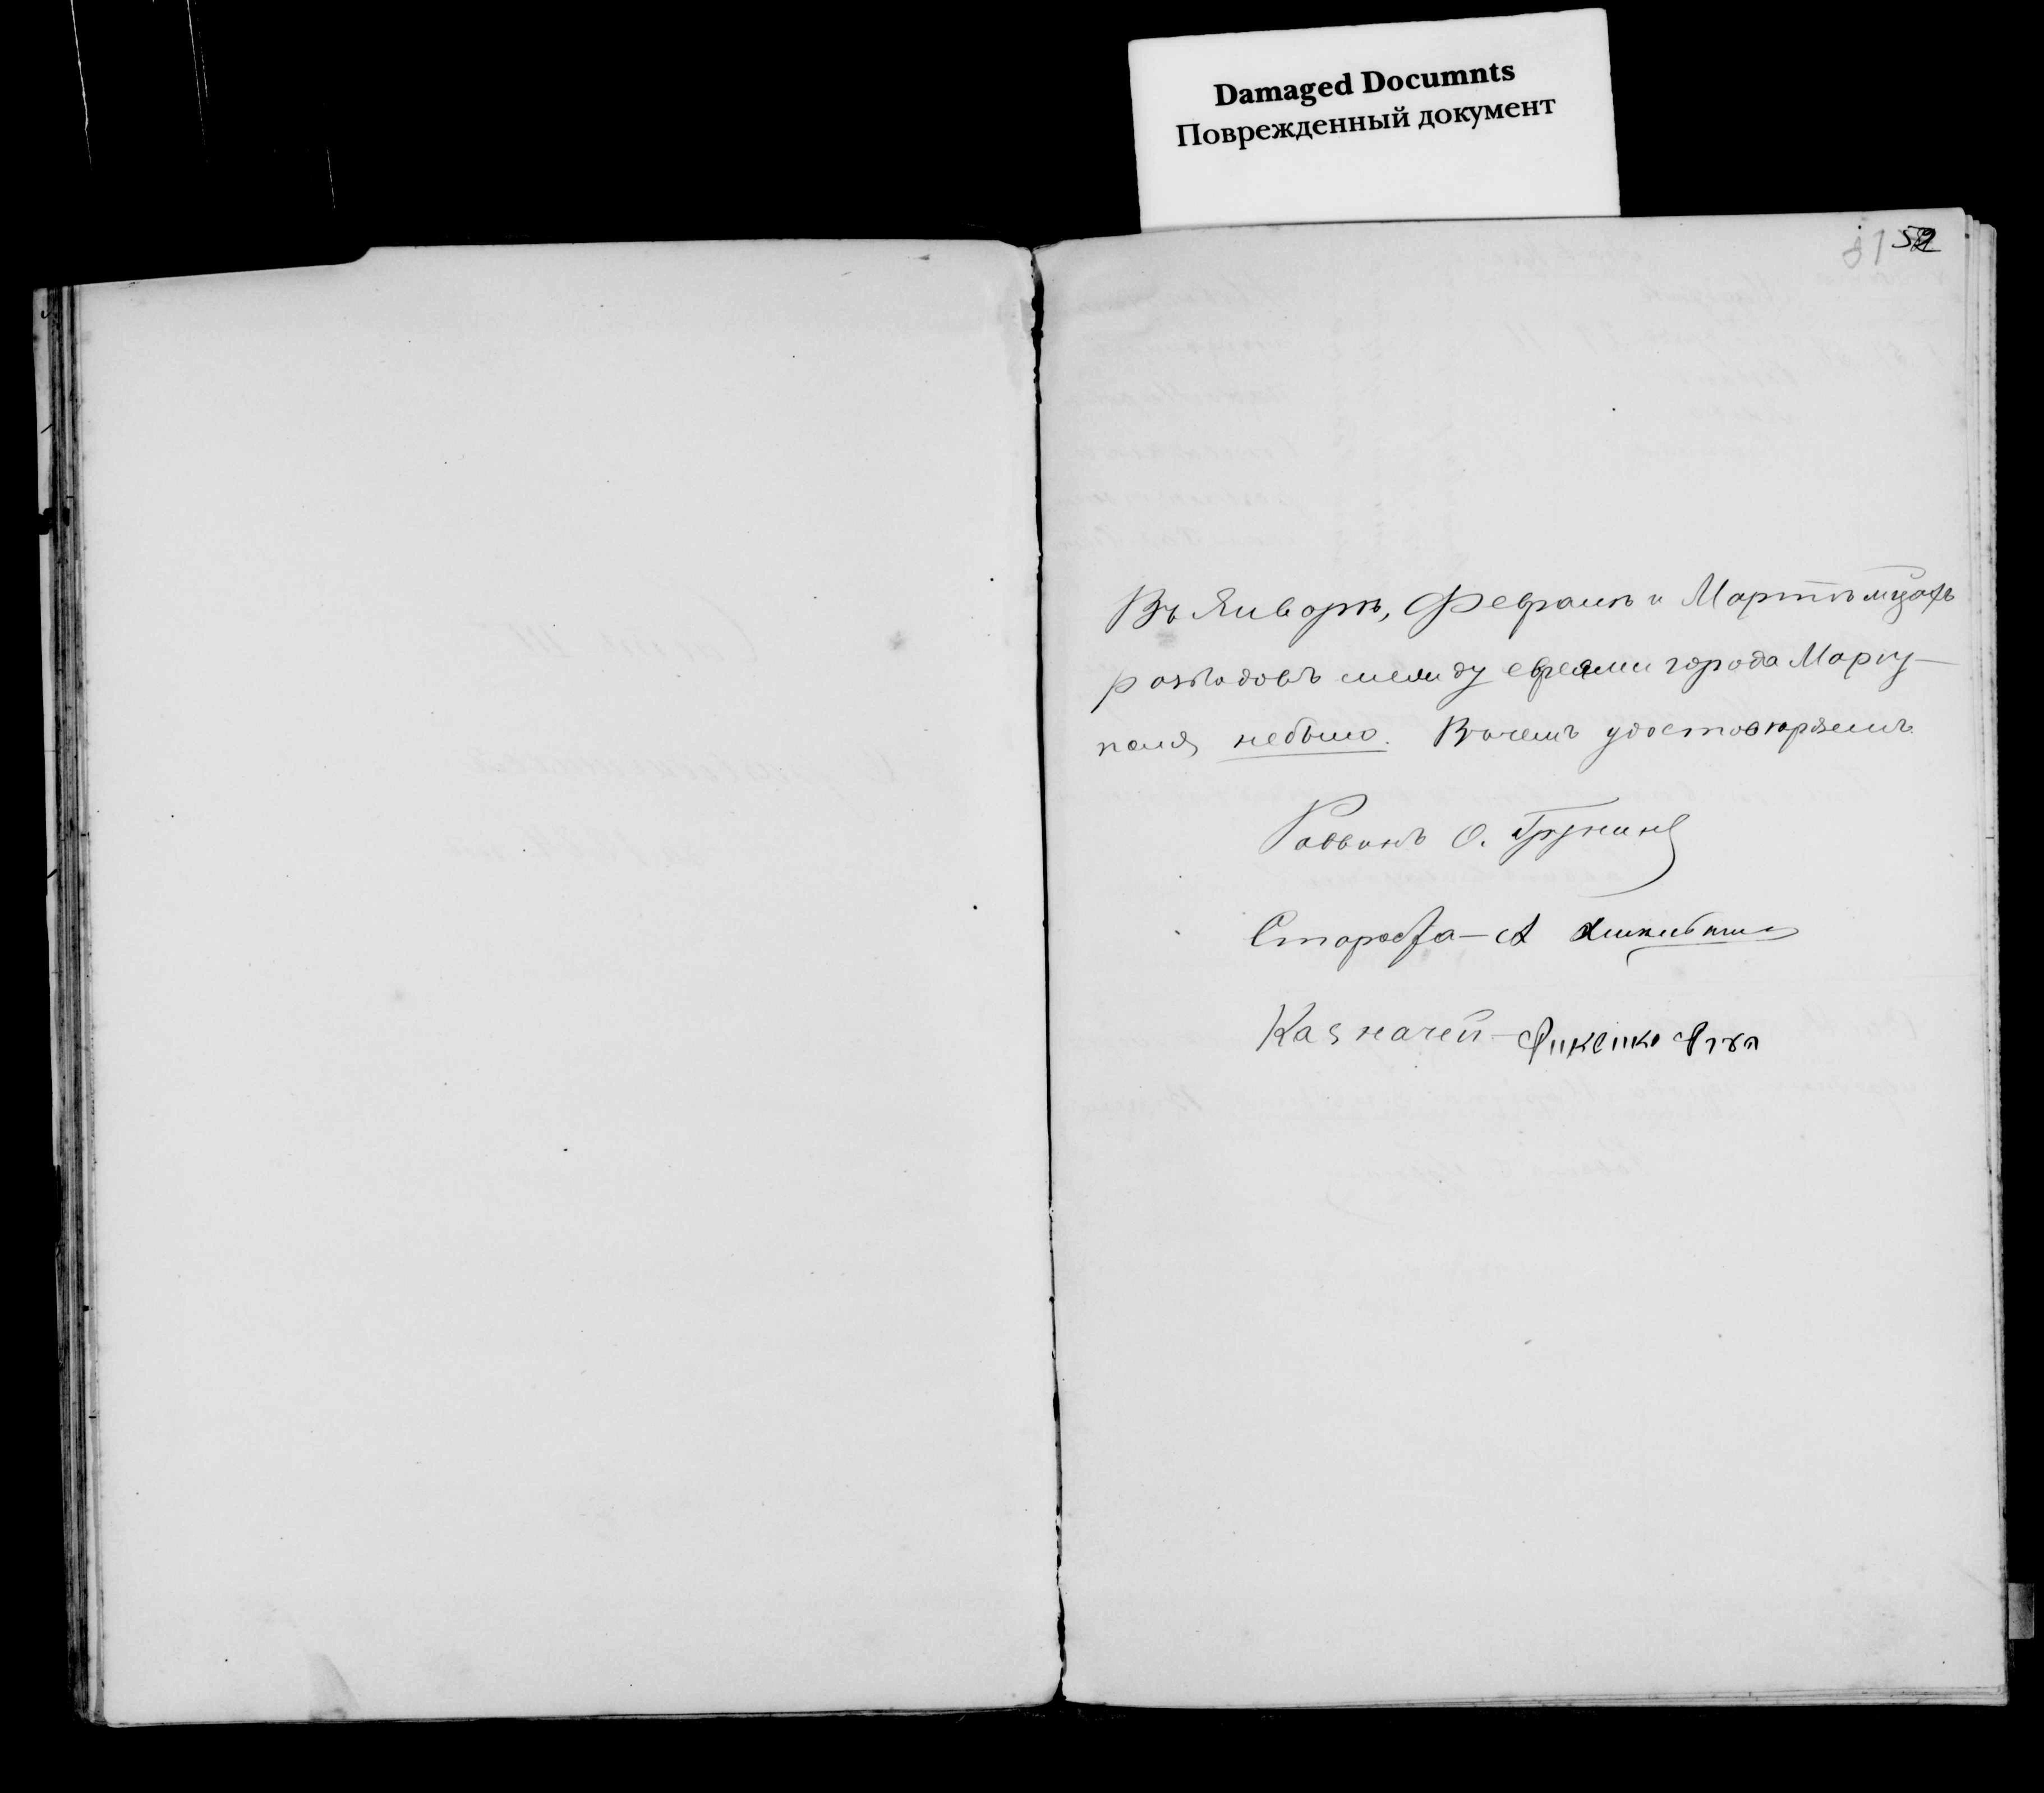 Damaged Documnts
Поврежденный документ
52
Въ Январѣ, Февралѣ и Мартѣ мцахъ
разводовъ между евреями города Мариу-
поля небыло. Въ чемъ удостовѣряемъ
Раввинъ О. Грунинъ
Староста - А
Казначей -